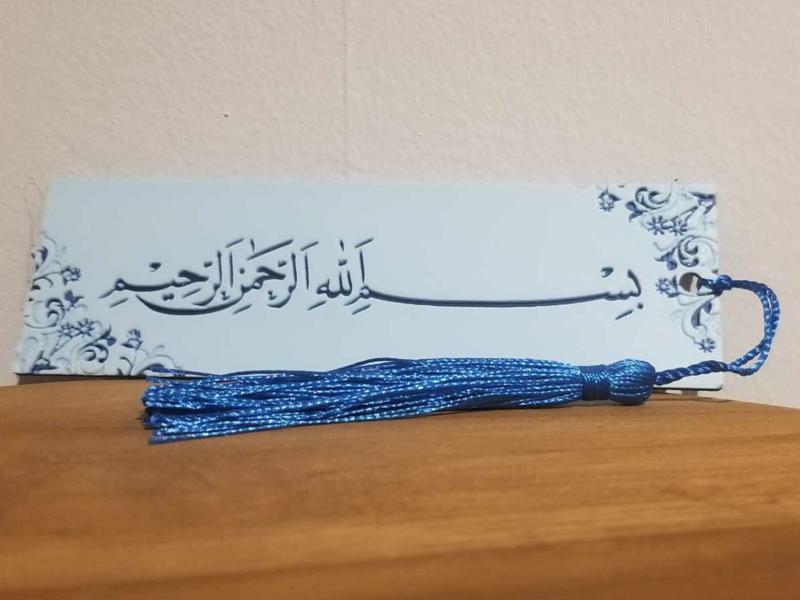 بِسْمِ اَللّٰهِ اَلرَّحْمَٰنِ اَلرَّحِيمِ